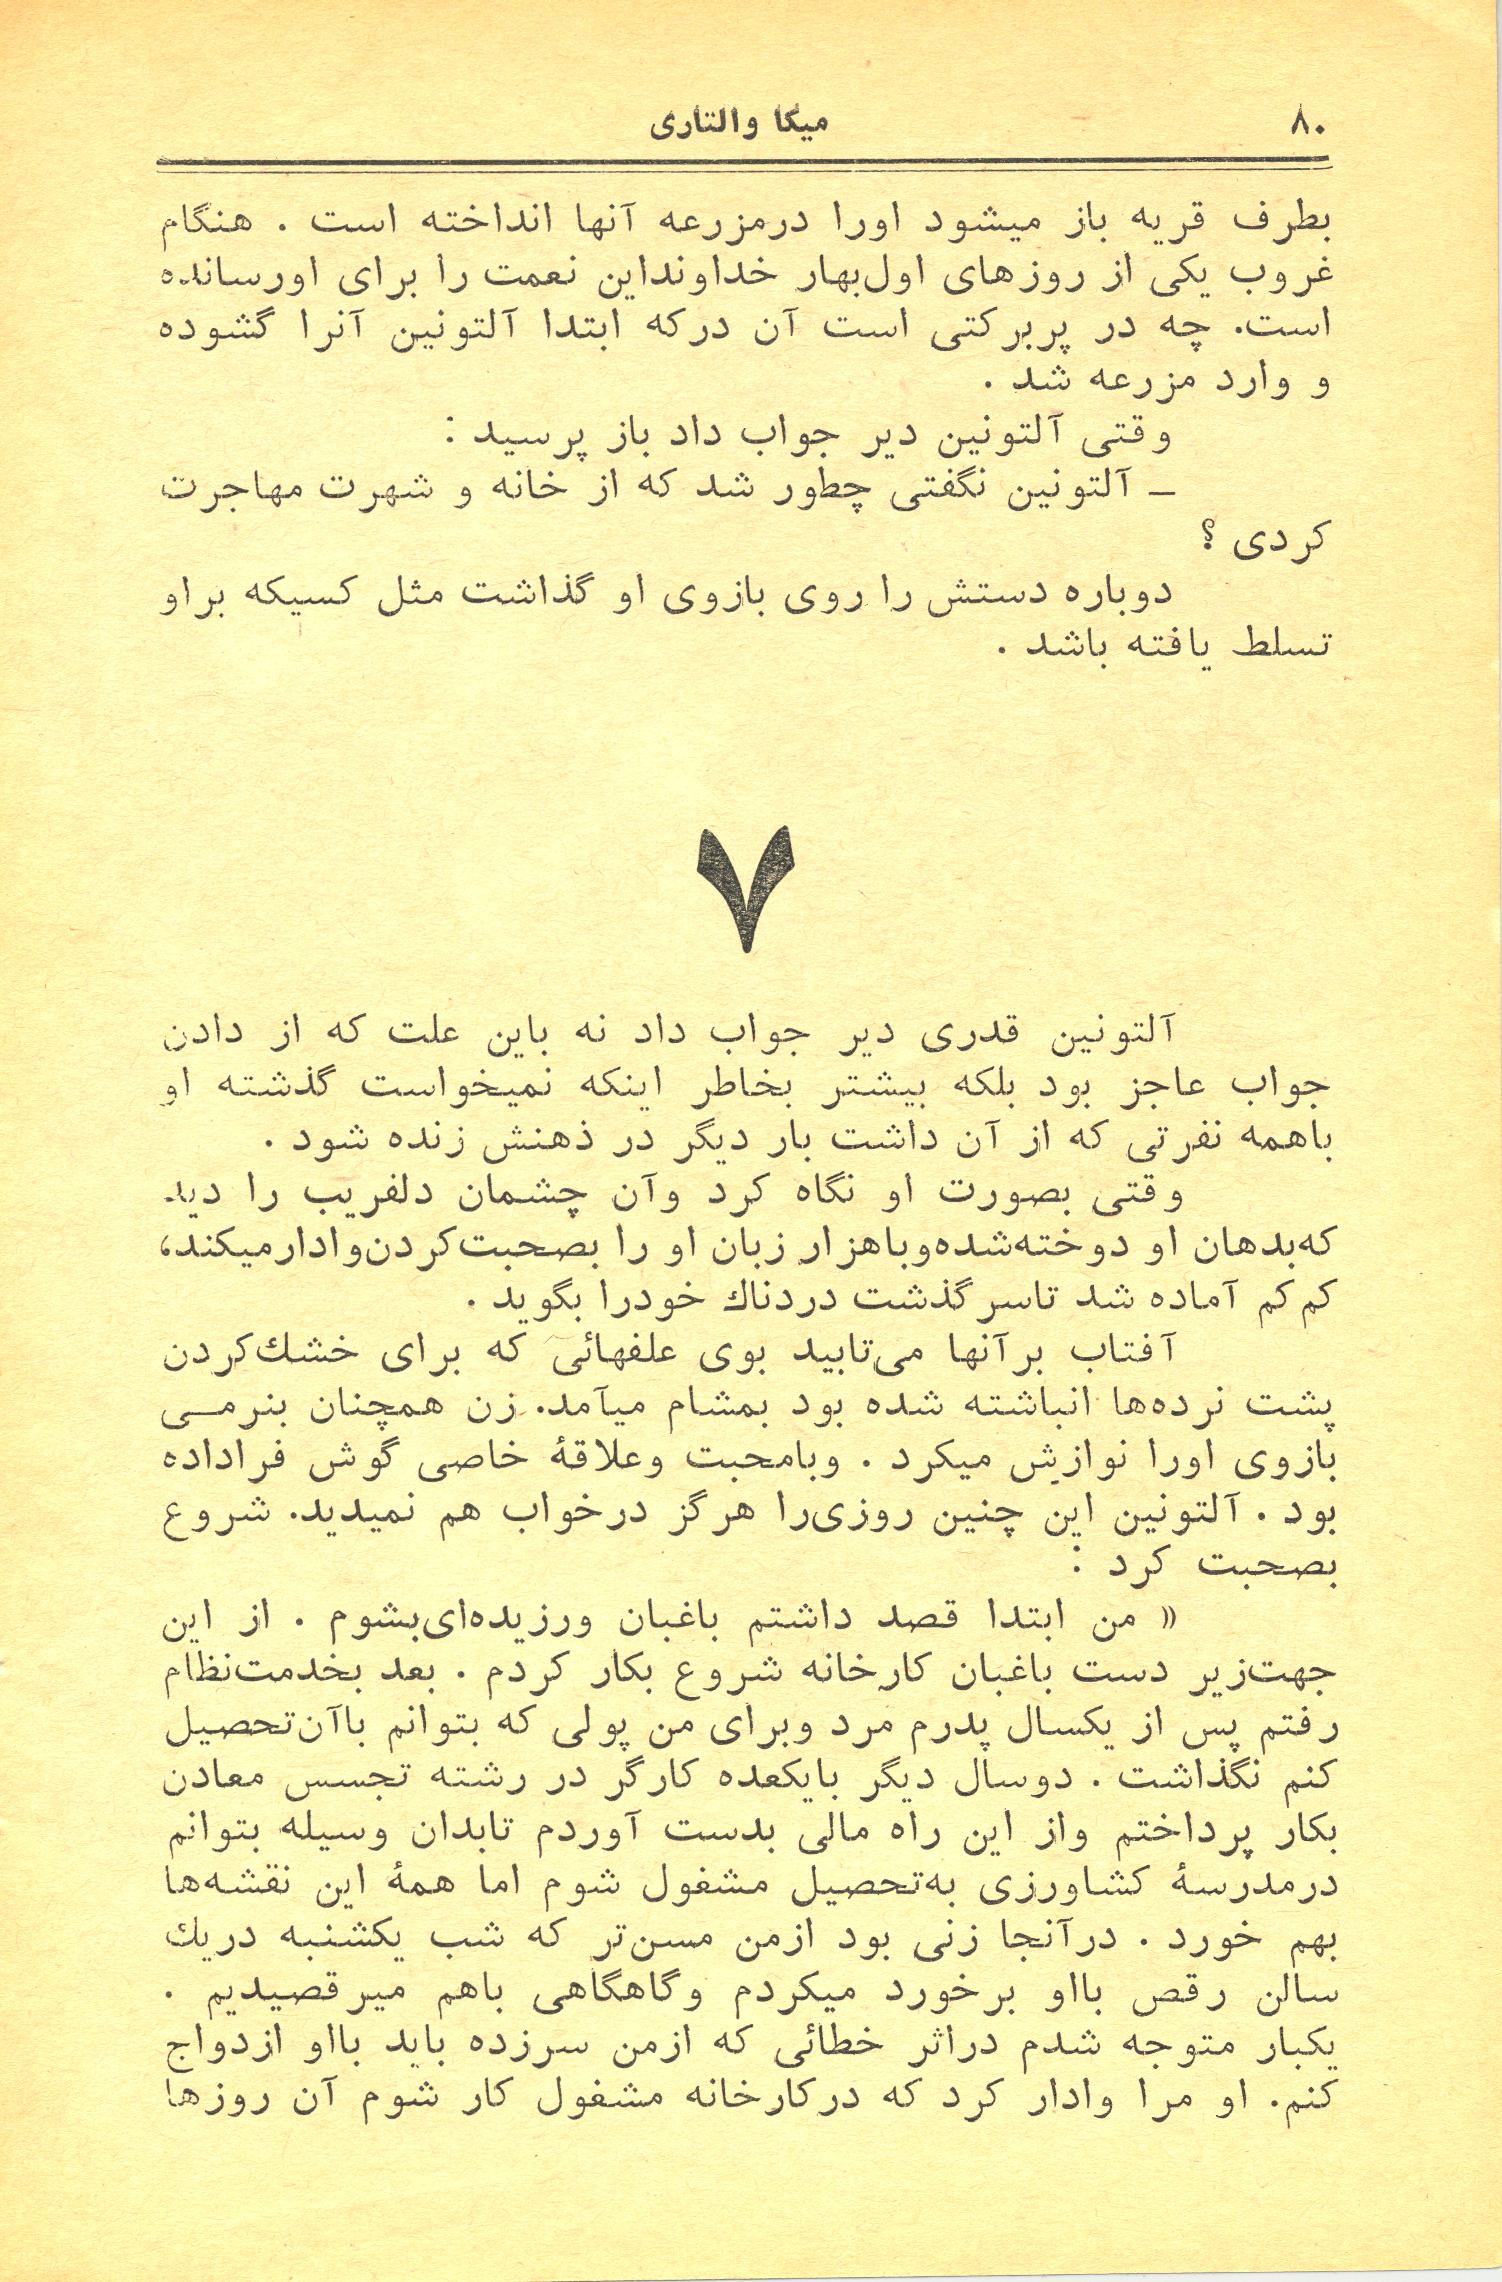 ۸۰
میکا والتاری
بطرف قریه باز میشود اورا درمزرعه آنها انداخته است . هنگام
غروب یکی از روزهای اول‌بهار خداونداین نعمت را برای اورسانده
است. چه در پربرکتی است آن درکه ابتدا آلتونین آنرا گشوده
و وارد مزرعه شد .
وقتی آلتونین دیر جواب داد باز پرسید :
ـ آلتونین نگفتی چطور شد که از خانه و شهرت مهاجرت
کردی ؟
دوباره دستش را روی بازوی او گذاشت مثل کسیکه براو
تسلط یافته باشد .
۷
آلتونین قدری دیر جواب داد نه باین علت که از دادن
جواب عاجز بود بلکه بیشتر بخاطر اینکه نمیخواست گذشته او
باهمه نفرتی که از آن داشت بار دیگر در ذهنش زنده شود .
وقتی بصورت او نگاه کرد وآن چشمان دلفریب را دید
که‌بدهان او دوخته‌شده‌وباهزار زبان او را بصحبت‌کردن‌وادارمیکند،
کم‌کم آماده شد تاسرگذشت دردناك خودرا بگوید .
آفتاب برآنها می‌تابید بوی علفهائی که برای خشك‌کردن
پشت نرده‌ها انباشته شده بود بمشام میآمد. زن همچنان بنرمـی
بازوی اورا نوازش میکرد . وبامحبت وعلاقهٔ خاصی گوش فراداده
بود . آلتونین این چنین روزی‌را هرگز درخواب هم نمیدید. شروع
بصحبت کرد :
« من ابتدا قصد داشتم باغبان ورزیده‌ای‌بشوم . از این
جهت‌زیر دست باغبان کارخانه شروع بکار کردم . بعد بخدمت‌نظام
رفتم پس از یکسال پدرم مرد وبرای من پولی که بتوانم باآن‌تحصیل
کنم نگذاشت . دوسال دیگر بایکعده کارگر در رشته تجسس معادن
بکار پرداختم واز این راه مالی بدست آوردم تابدان وسیله بتوانم
درمدرسهٔ کشاورزی به‌تحصیل مشغول شوم اما همهٔ این نقشه‌ها
بهم خورد . درآنجا زنی بود ازمن مسن‌تر که شب یکشنبه دریك
سالن رقص بااو برخورد میکردم وگاهگاهی باهم میرقصیدیم .
یکبار متوجه شدم دراثر خطائی که ازمن سرزده باید بااو ازدواج
کنم. او مرا وادار کرد که درکارخانه مشغول کار شوم آن روزها